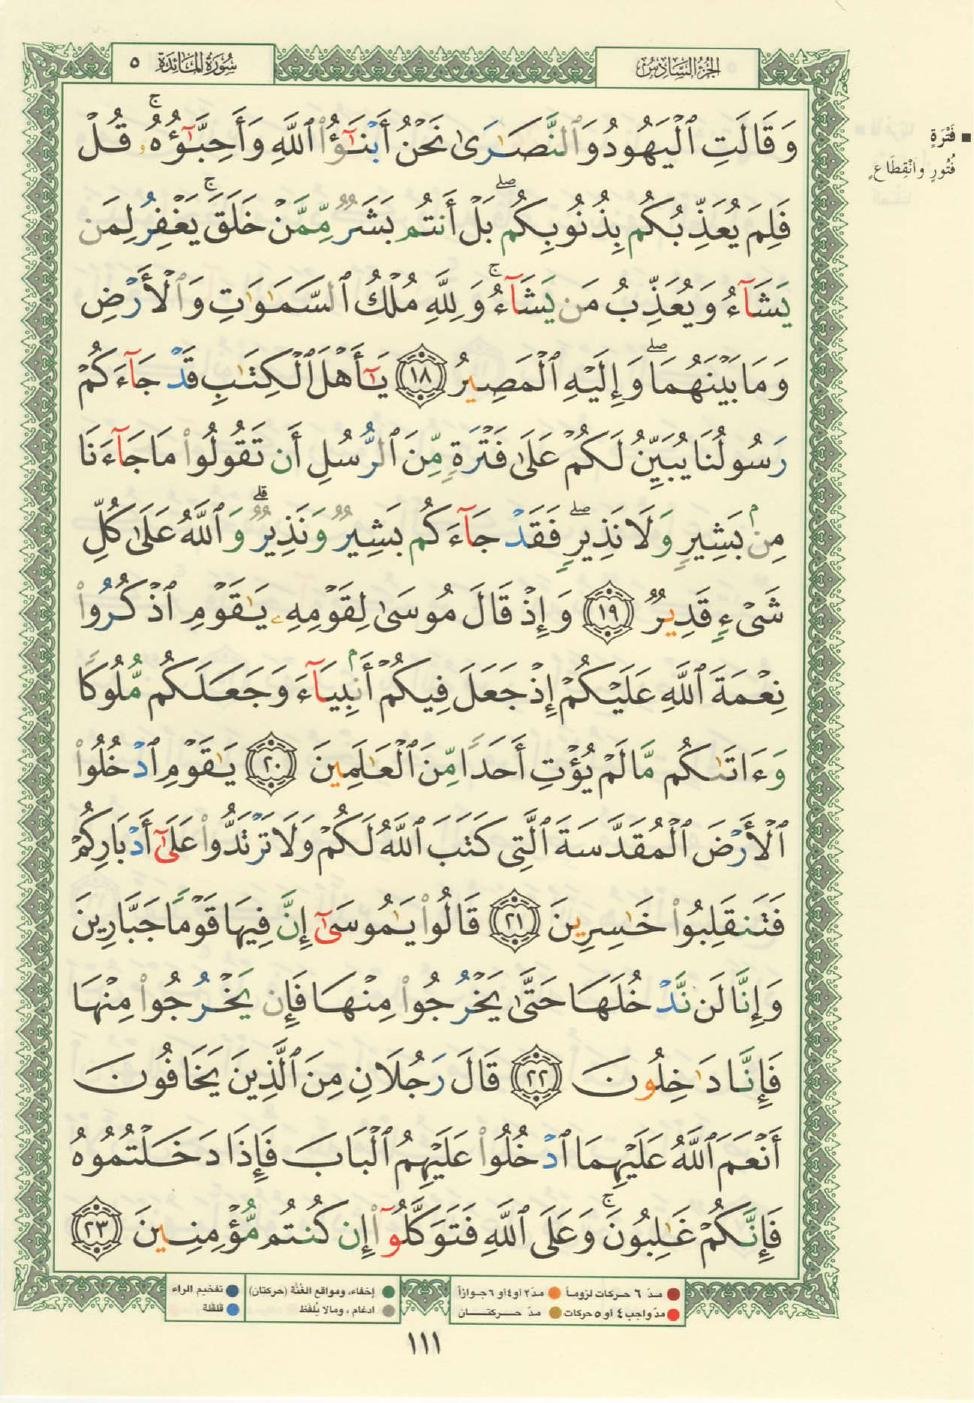 سُورَةُ المَائدَة ٥
الجُزءُ السَّادِسُ
وَقَالَتِ ٱلْيَهُودُ وَٱلنَّصَـٰرَىٰ نَحْنُ أَبْنَـٰٓؤُا۟ ٱللَّهِ وَأَحِبَّـٰٓؤُهُۥ ۚ قُلْ
فَلِمَ يُعَذِّبُكُم بِذُنُوبِكُم ۖ بَلْ أَنتُم بَشَرٌ مِّمَّنْ خَلَقَ ۚ يَغْفِرُ لِمَن
يَشَآءُ وَيُعَذِّبُ مَن يَشَآءُ ۚ وَلِلَّهِ مُلْكُ ٱلسَّمَـٰوَٰتِ وَٱلْأَرْضِ
وَمَا بَيْنَهُمَا ۖ وَإِلَيْهِ ٱلْمَصِيرُ ١٨ يَـٰٓأَهْلَ ٱلْكِتَـٰبِ قَدْ جَآءَكُمْ
رَسُولُنَا يُبَيِّنُ لَكُمْ عَلَىٰ فَتْرَةٍ مِّنَ ٱلرُّسُلِ أَن تَقُولُوا۟ مَا جَآءَنَا
مِنۢ بَشِيرٍ وَلَا نَذِيرٍ ۖ فَقَدْ جَآءَكُم بَشِيرٌ وَنَذِيرٌ ۗ وَٱللَّهُ عَلَىٰ كُلِّ
شَىْءٍ قَدِيرٌ ١٩ وَإِذْ قَالَ مُوسَىٰ لِقَوْمِهِۦ يَـٰقَوْمِ ٱذْكُرُوا۟
نِعْمَةَ ٱللَّهِ عَلَيْكُمْ إِذْ جَعَلَ فِيكُمْ أَنۢبِيَآءَ وَجَعَلَكُم مُّلُوكًا
وَءَاتَىٰكُم مَّا لَمْ يُؤْتِ أَحَدًا مِّنَ ٱلْعَـٰلَمِينَ ٢٠ يَـٰقَوْمِ ٱدْخُلُوا۟
ٱلْأَرْضَ ٱلْمُقَدَّسَةَ ٱلَّتِى كَتَبَ ٱللَّهُ لَكُمْ وَلَا تَرْتَدُّوا۟ عَلَىٰٓ أَدْبَارِكُمْ
فَتَنقَلِبُوا۟ خَـٰسِرِينَ ٢١ قَالُوا۟ يَـٰمُوسَىٰٓ إِنَّ فِيهَا قَوْمًا جَبَّارِينَ
وَإِنَّا لَن نَّدْخُلَهَا حَتَّىٰ يَخْرُجُوا۟ مِنْهَا فَإِن يَخْرُجُوا۟ مِنْهَا
فَإِنَّا دَٰخِلُونَ ٢٢ قَالَ رَجُلَانِ مِنَ ٱلَّذِينَ يَخَافُونَ
أَنْعَمَ ٱللَّهُ عَلَيْهِمَا ٱدْخُلُوا۟ عَلَيْهِمُ ٱلْبَابَ فَإِذَا دَخَلْتُمُوهُ
فَإِنَّكُمْ غَـٰلِبُونَ ۚ وَعَلَى ٱللَّهِ فَتَوَكَّلُوٓا۟ إِن كُنتُم مُّؤْمِنِينَ ٢٣
فَتْرَةٍ
فُتُورٍ وانْقِطَاعٍ
مدّ ٦ حركات لزوماً
مدّ٢ أو٤أو ٦جوازاً
مدّ واجب ٤ أو ٥ حركات
مدّ حركتان
إخفاء، ومواقع الغُنَّة (حركتان)
ادغام ، ومالا يُلفَظ
تفخيم الراء
قلقلة
١١١